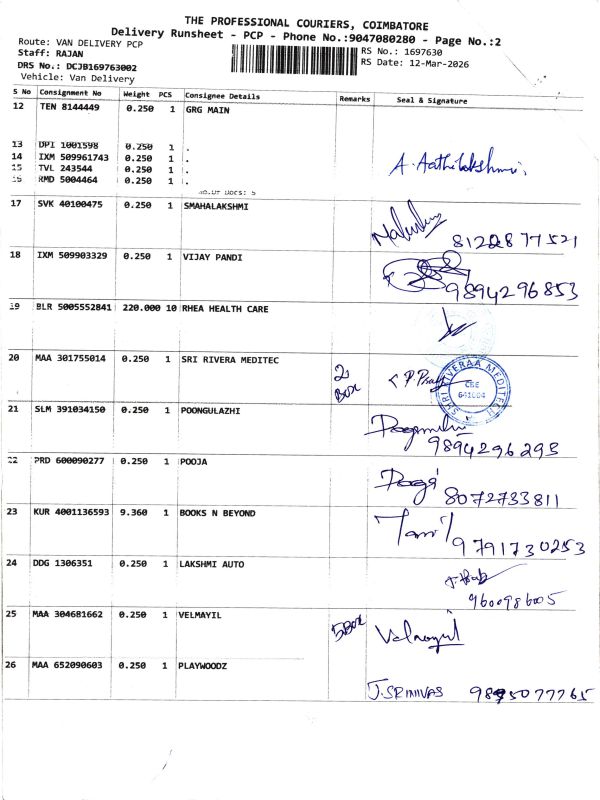 THE PROFESSIONAL COURIERS, COIMBATORE
Delivery Runsheet - PCP - Phone No.:9047080280 - Page No.:2
Route: VAN DELIVERY PCP
RS No.: 1697630
Staff: RAJAN
RS Date: 12-Mar-2026
DRS No.: DCJB169763002
Vehicle: Van Delivery
S No Consignment No Weight PCS Consignee Details Remarks Seal & Signature
12 TEN 8144449 0.250 1 GRG MAIN
13 DPI 1001598 0.250 1 .
14 IXM 509961743 0.250 1 .
15 TVL 243544 0.250 1 .
16 RMD 5004464 0.250 1 .
A. Aathilakshmi
No.Of Docs: 5
17 SVK 40100475 0.250 1 SMAHALAKSHMI
8122877521
18 IXM 509903329 0.250 1 VIJAY PANDI
9894296853
19 BLR 5005552841 220.000 10 RHEA HEALTH CARE
20 MAA 301755014 0.250 1 SRI RIVERA MEDITEC 2 Box
SHRI RIVERAA MEDITECH
CBE
641004
21 SLM 391034150 0.250 1 POONGULAZHI
9894296293
22 PRD 600090277 0.250 1 POOJA
8072733811
23 KUR 4001136593 9.360 1 BOOKS N BEYOND
Tamil
9791730253
24 DDG 1306351 0.250 1 LAKSHMI AUTO
9600986005
25 MAA 304681662 0.250 1 VELMAYIL 5 Box Velmayil
26 MAA 652090603 0.250 1 PLAYWOODZ
J. SRINIVAS 9895077765